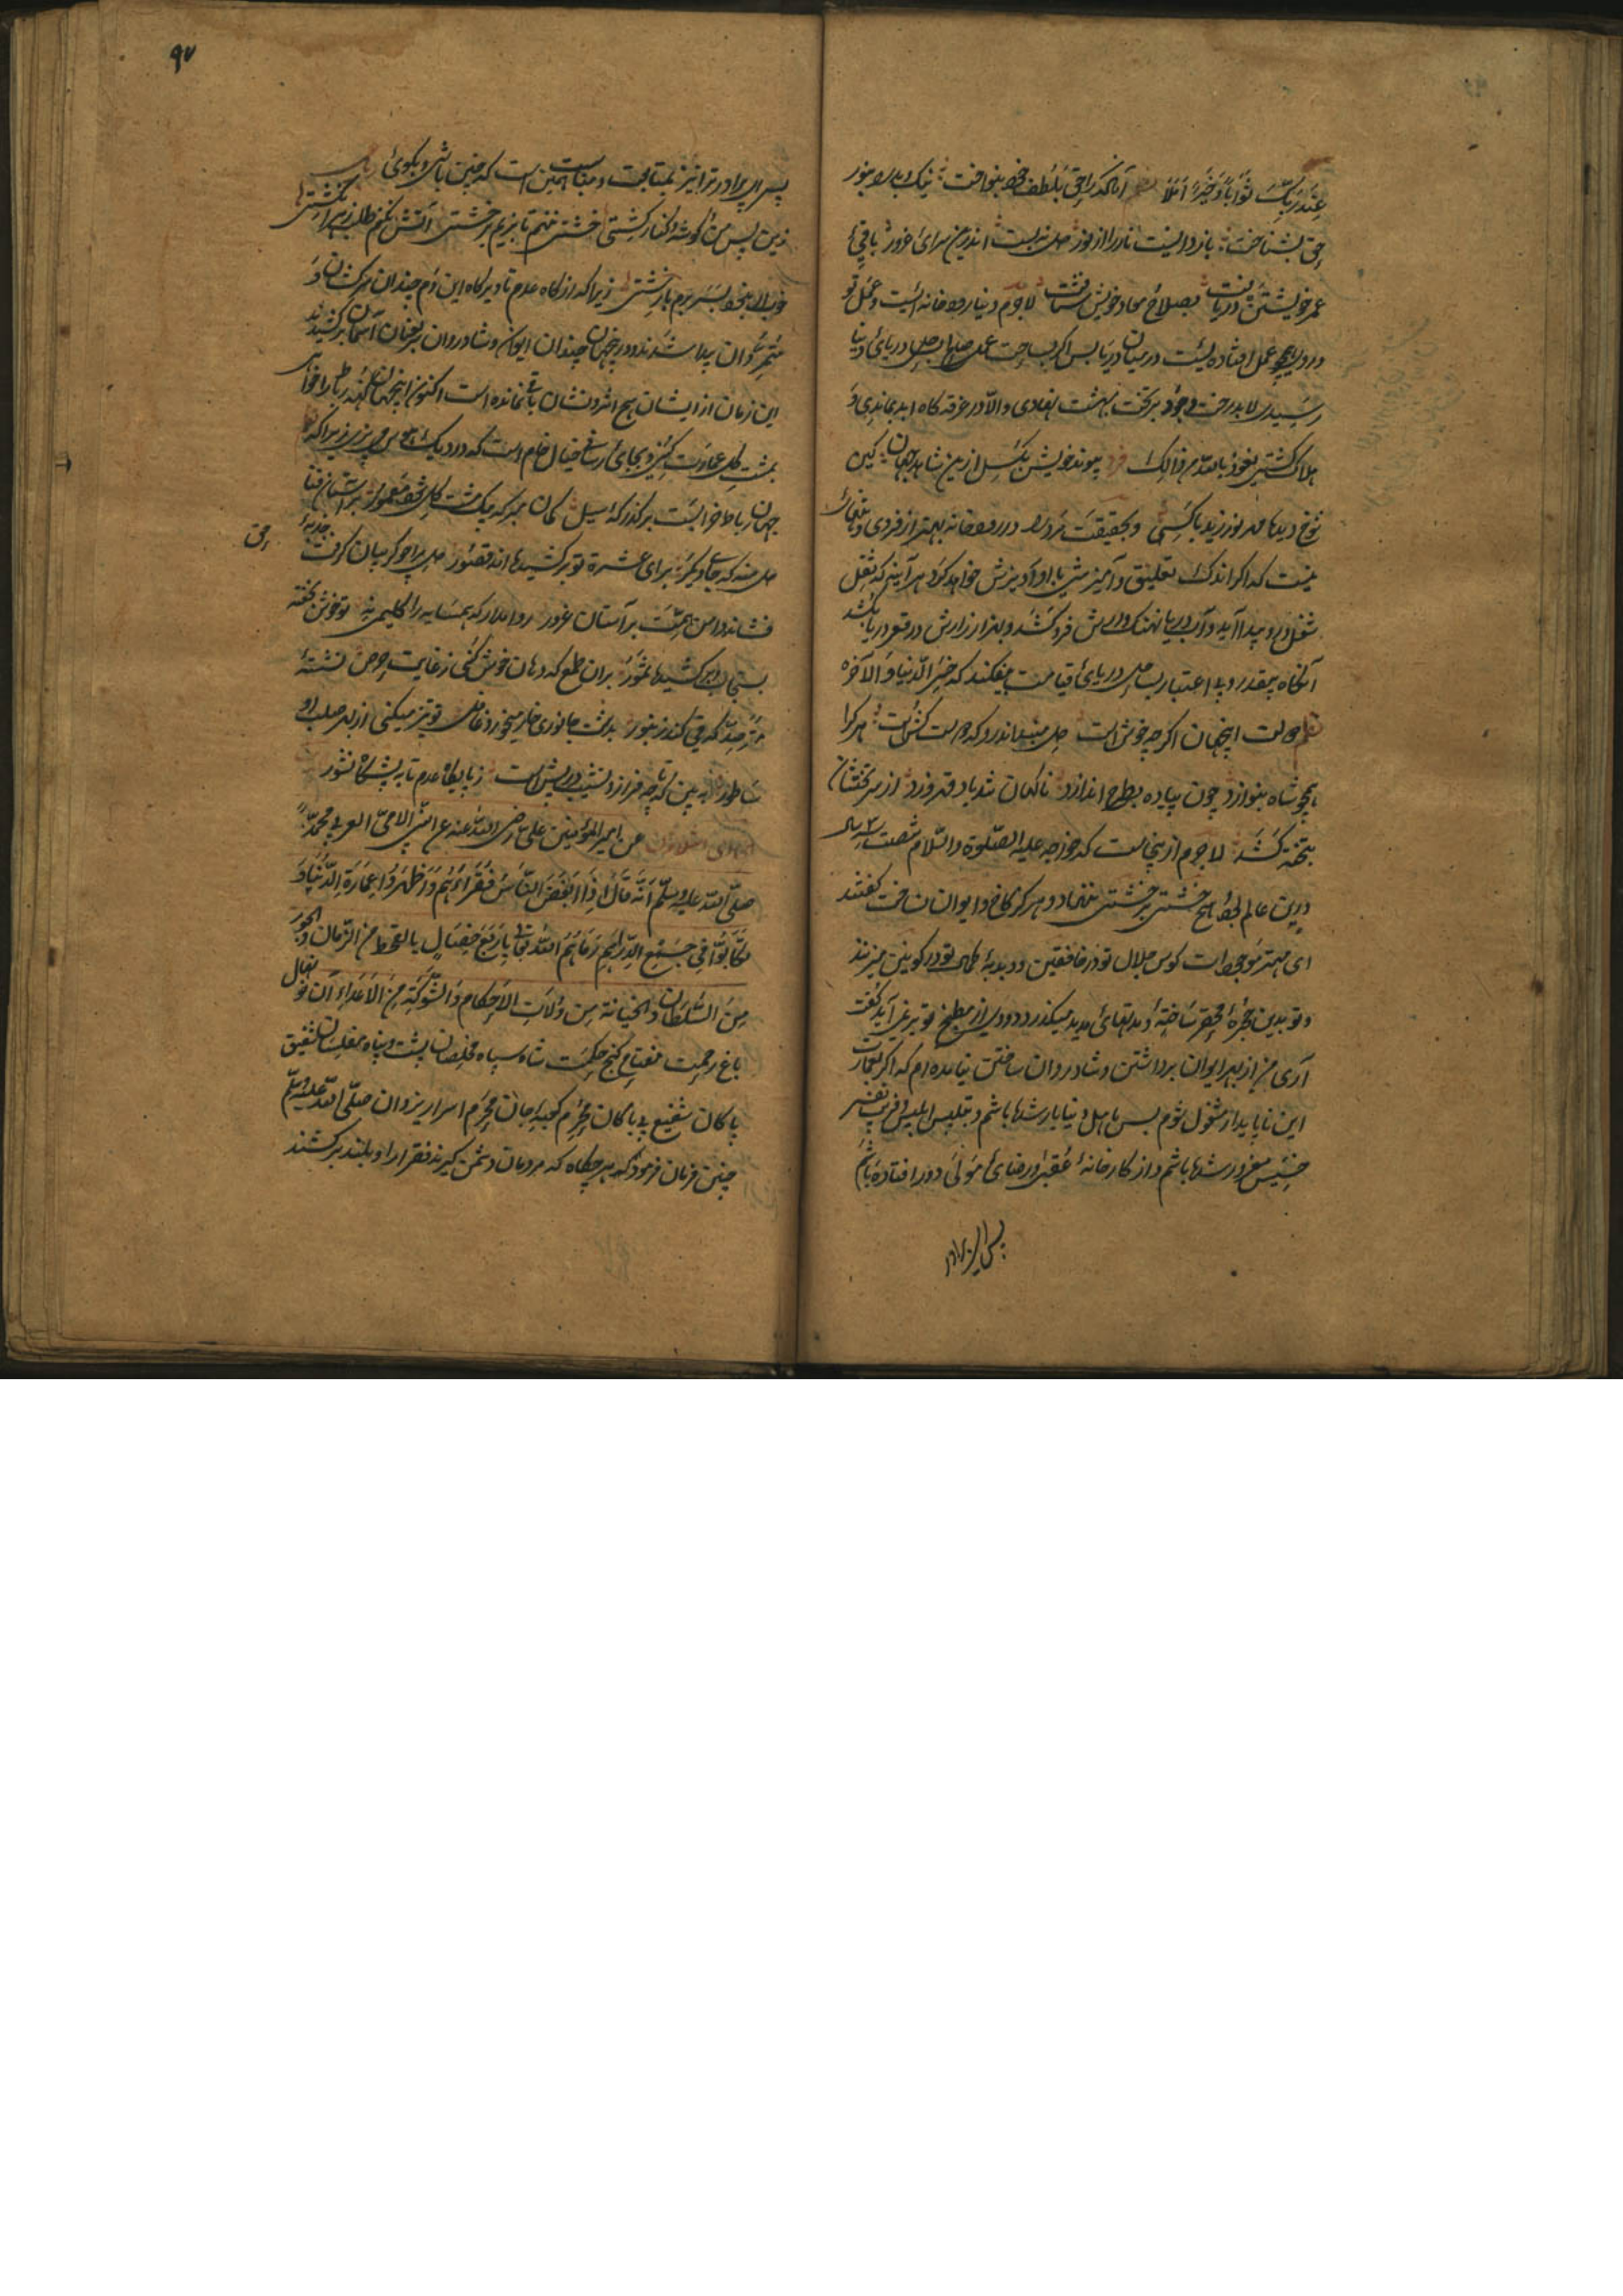 عِنْدَ رَبِّكَ ثَوَابًا وَخَيْرٌ اَمَلًا آنانکه را حق بلطف خود بنواخت نیک و بد
حق بشناخت باز دانست نار را از نور دل نه بست اندرین سرای غرور باقی
عمر خویشتن دریافت بصلاح معاد خویش شتافت لاجرم دنیا رودخانه ایست و عمل تو
عمل افتاده است در میان دریا پس اگر بساحت عمل بساحل دریای دنیا
رسیدی لابد رخت وجود بر تخت بهشت نهادی والا در غرقه گاه ابد بماندی و
هلاک گشتی نعوذ بالله من ذالک فرد پیوند خویش بگسل ازین شاهد جهان کین
شوخ دیده روز نزید با کسی و بحقیقت
نیست که اگر اندک تعلیق و آمیزشی با او آویزش خواهد کرد هر آینه که ثقل
شغل درو پیدا آید و آب دریا نهنگ وارش فرو کشد و بهزار زارش در قعر دریا کشد
آنگاه بیقدر و بی اعتبار بساحل دریای قیامت بیفکند که خسر الدنیا والآخرة
دولت اینجهان اگرچه خوش است دل مبند اندرو که دولت کش است هر کرا
همچو شاه بنوازد چون پیاده بطرح اندازد ناگهان تندباد قهر وزد از سر تختشان
بتخته کشد لاجرم ازینجاست که خواجه علیه الصلوة والسلام شصت و سه سال
درین عالم هیچ خشتی بر خشتی ننهاد و هرگز کاخ و ایوان نساخت گفتند
ای مهتر موجودات کوس جلال تو در خافقین و دبدبه کمال تو در کونین میزنند
و تو بدین حجرهٔ محقر ساختهٔ و مدتهای مدید میگذرد دودی از مطبخ تو بر نمی آید گفت
آری من از بهر ایوان برداشتن و شادروان ساختن نیامده ام که اگر بعمارت
این ناپایدار مشغول شوم پس باهل دنیا یار شده باشم و بتلبیس ابلیس و فریب نفس
خسیس مغرور شده باشم و از کارخانهٔ عقبی و رضای مولی دور افتاده باشم
پس ای برادر
۹۷
پس ای برادر ترا نیز متابعت و مناسبت همین است که چنین باشی و بگوئی
زین پس من و گوشه و کنار کشتی خشتی ننهم تا بزیم بر خشتی آتش نکنم طلب ز هر انگشتی
خود را بسر برم بار پشتی زیرا که از گاه عدم تا دیرگاه این دم چندان سرکشان و
متمردان پیدا شدند و در جهان چندان ایوان و شادروان بر عنان آسمان برکشیدند
این زمان از ایشان هیچ اثر و نشان باقی نمانده است اکنون اینجهان کهنه رباط را خواهی
بمشت گل عمارت کنی و بجای رسانی خیال خام است که در دیگ هوس می پزی زیرا که
جهان رباط خرابست بر گذرگه سیل گمان مبر که بیک مشت گل شود معمور بر آستان فنا
دل منه که جای دگر برای عشرت تو برکشیده اند قصور دلی برآور گریبان گرفت جذبهٔ
حق
فشاند دامن همت بر آستان غرور روا مدار که همسایه را گلیمی نه تو خوش خفته
بسنجاب برکشیده سمور بران طمع که دهان خوش کنی ز غایت حرص نشستهٔ
مترصد که قی کند زنبور بدشت جانوری خار میخورد غافل تو تیز میکنی از بهر صلب او
ساطور ببین که تا چه فراز و نشیب در پیش است ز پایگاه عدم تا به پیشگاه نشور
عن امیر المؤمنین علی رضی الله عنه عن النبی الامی العربی محمد
صلی الله علیه وسلم اَنَّهُ قَالَ اِذَا اَبْغَضَ النَّاسُ فُقَرَاءَهُمْ وَاَظْهَرُوا عِمَارَةَ الدُّنْيَا وَ
تَكَالَبُوا فِي جَمْعِ الدَّرَاهِمِ رَمَاهُمُ اللهُ تَعَالَى بِاَرْبَعِ خِصَالٍ بِالْقَحْطِ مِنَ الزَّمَانِ وَالْجَوْرِ
مِنَ السُّلْطَانِ وَالْخِيَانَةِ مِنْ وُلَاةِ الْاَحْكَامِ وَالشَّوْكَةِ مِنَ الْاَعْدَاءِ آن نونهال
باغ رحمت مفتاح گنج حکمت شاه سپاه مخلصان پشت و پناه مفلسان شفیق
پاکان شفیع بی باکان محرم کعبهٔ جان محرم اسرار یزدان صلی الله علیه وسلم
چنین فرمان فرمود که هرچگاه که مردمان دشمن گیرند فقرا را و بلند برکشند